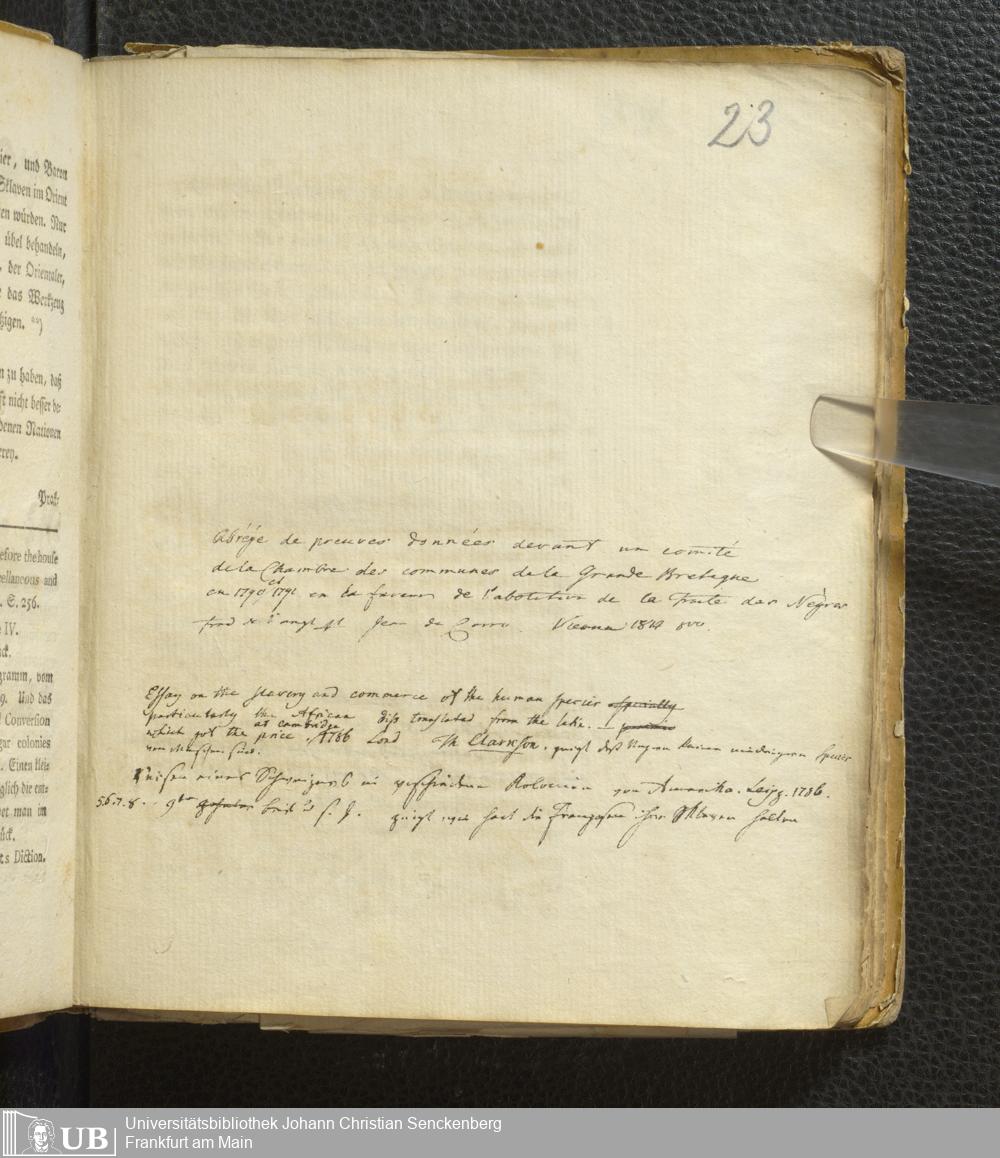 23
ier, und Baron
Sklaven im Orient
en würden. Nur
übel behandeln,
, der Orientaler,
e das Werkzeug
higen.
n zu haben, daß
st nicht besser be-
denen Nationen
erey.
Prak-
efore the house
cellaneous and
. S. 256.
IV.
ück.
gramm, vom
9. Und das
Conversion
gar colonies
. Einen klei-
glich die em-
bet man im
ück.
ts Diction.
Abrégé de preuves données devant un comité
de la Chambre des communes de la Grande Bretagne
en 1790 et 1791 en la faveur de l'abolition de la Traite des Nègres
trad de l'angl Jean de Carro. Vienne 1814 8vo.
Essay on the slavery and commerce of the human species especially
particularly the African diss translated from the latin.
which got the price at cambridge 1786 Lond Th Clarkson. zeigt daß Neger keine niedrigern Species
von Menschen sind.
Reisen eines Schweizers in verschiedene Kolonien von Amerika. Leipz. 1786.
5.6.7.8. 9ter Brief s. f. zeigt wie hart die Franzosen ihre Sklaven halten
UB
Universitätsbibliothek Johann Christian Senckenberg
Frankfurt am Main